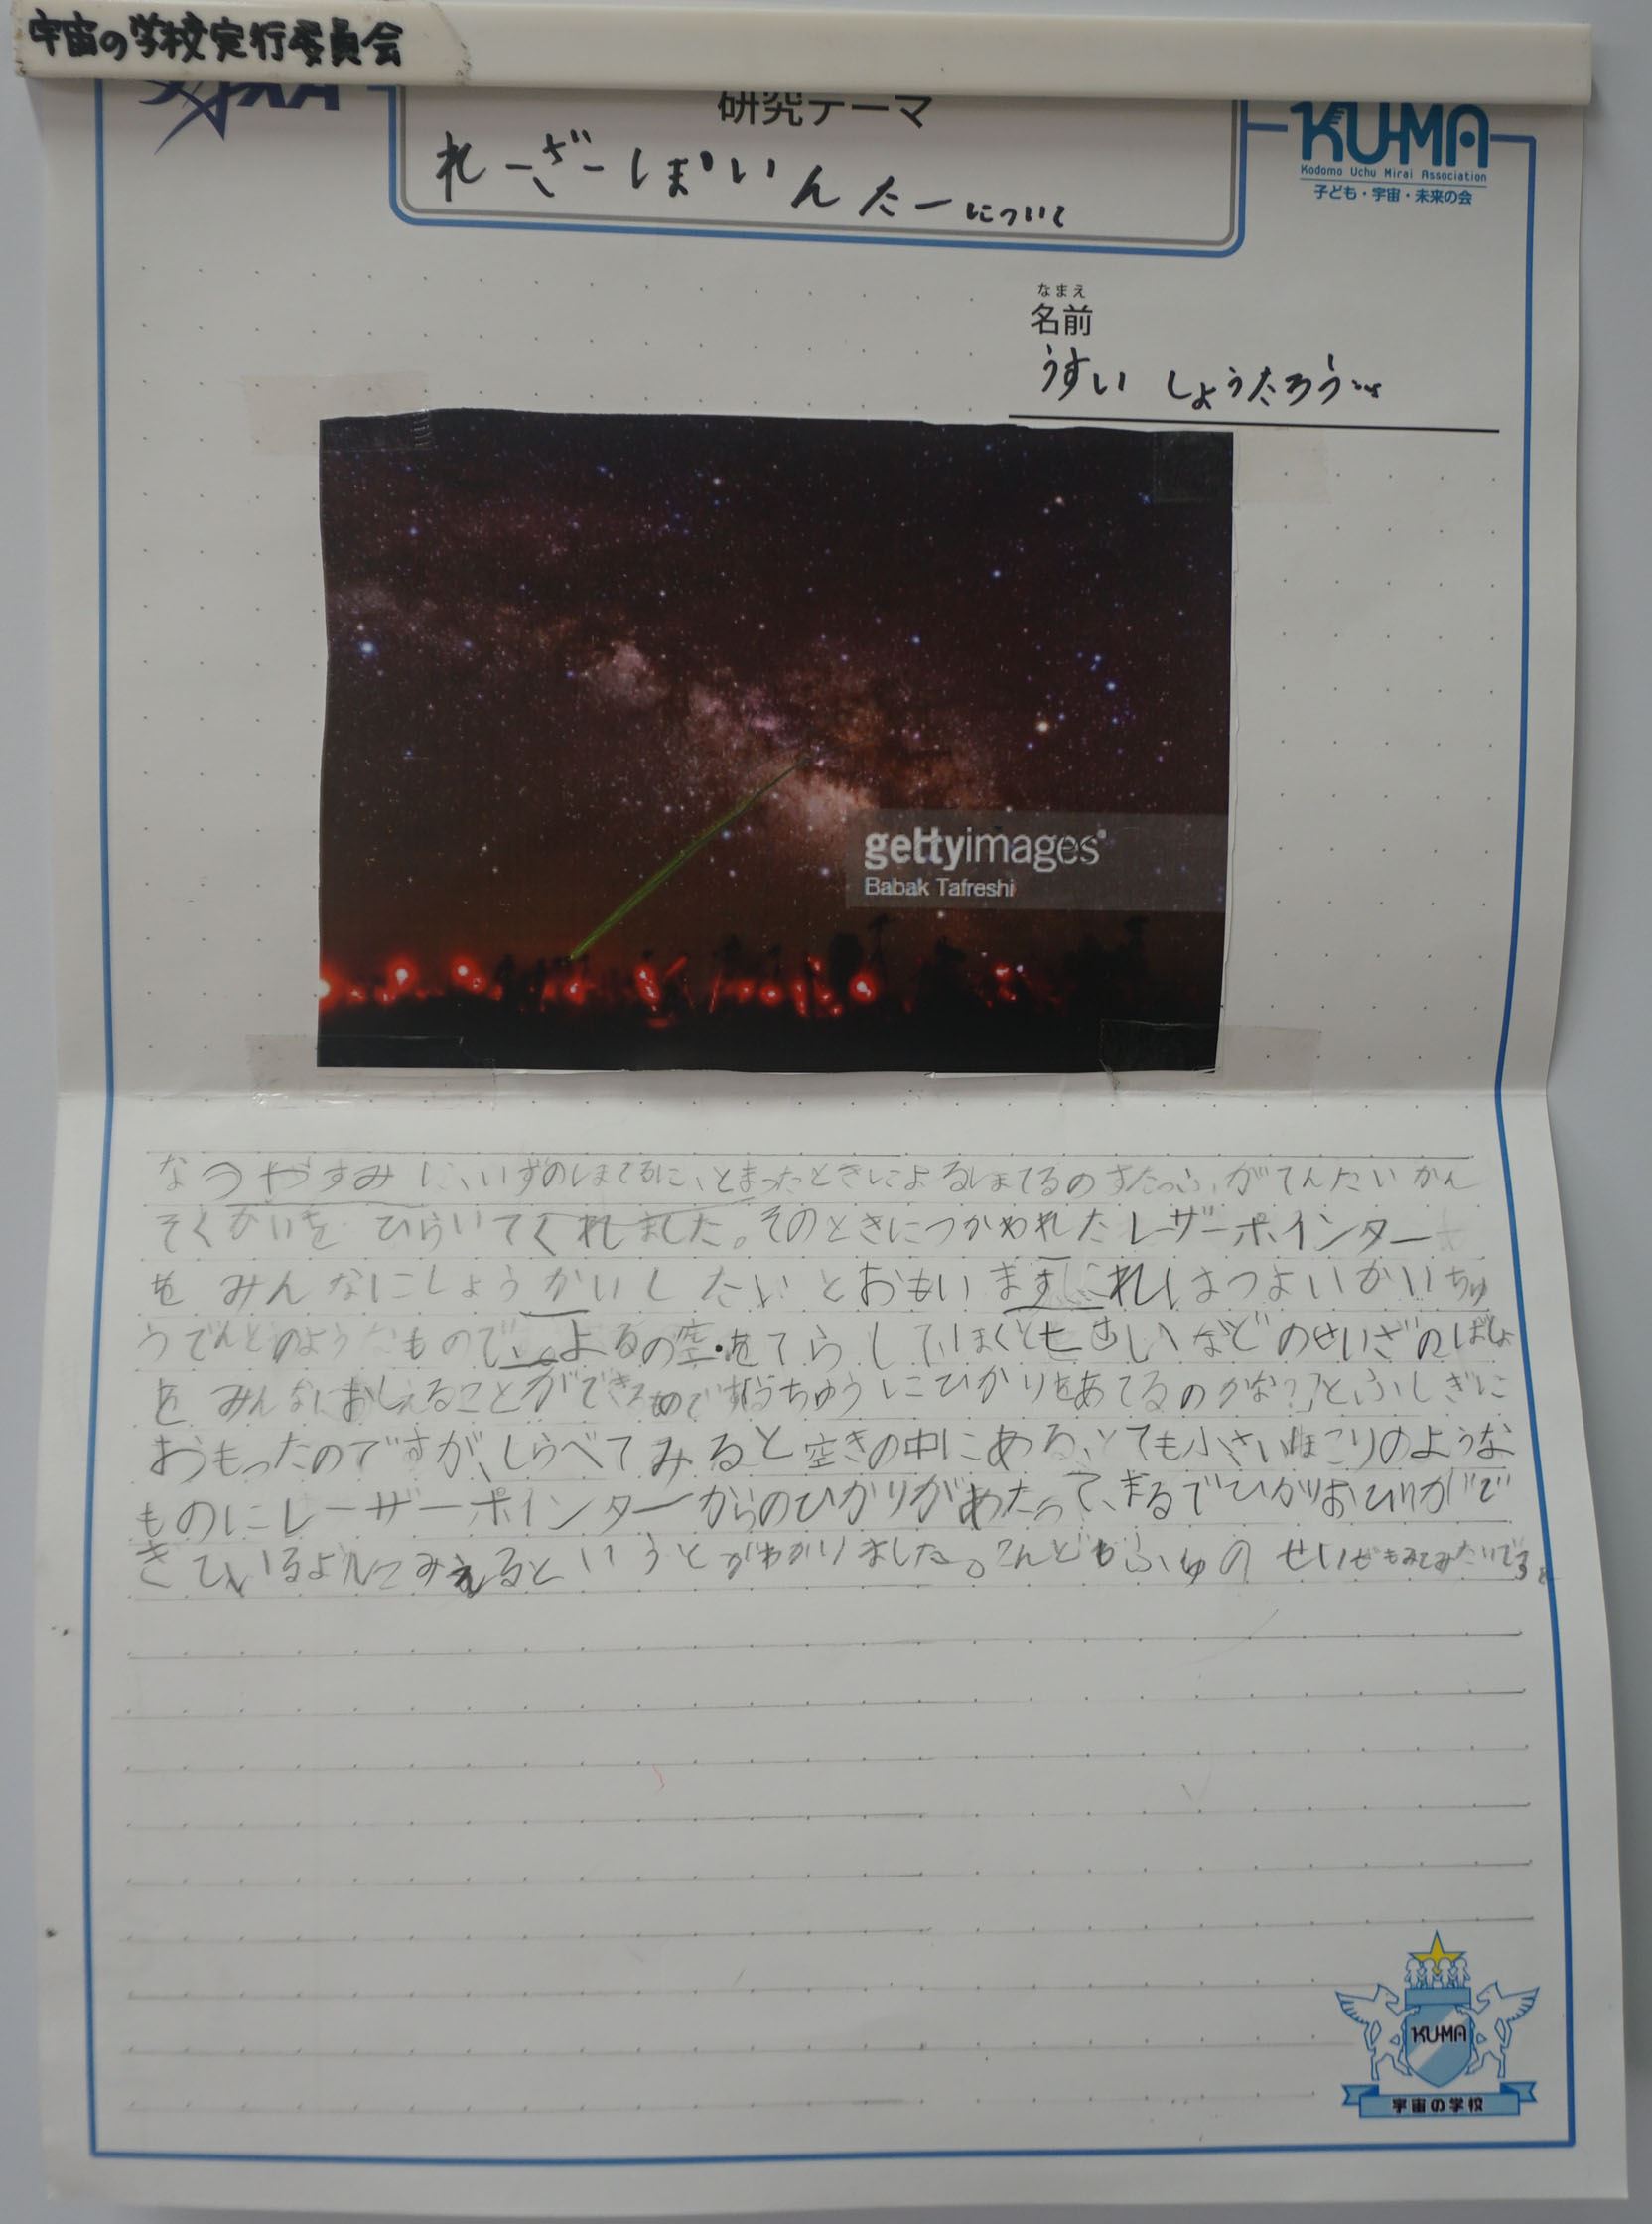 宇宙の学校実行委員会
研究テーマ
れーざーぽいんたーについて
KU-MA
Kodomo Uchu Mirai Association
子ども・宇宙・未来の会
なまえ
名前
うすい しょうたろう
gettyimages
Babak Tafreshi
なつやすみに、いずのほてるに、とまったときによるほてるのすたっふがてんたいかん
そくかいを ひらいてくれました。そのときにつかわれたレーザーポインター
を みんなにしょうかいしたいとおもいます。これはつよいかいちゅ
うでんとうのようなもので、よるの空をてらして、ほくとせいなどのせいざのばしょ
を みんなにおしえることができるものです「うちゅうにひかりをあてるのかな？」とふしぎに
おもったのですが、しらべてみると空きの中にある、とても小さいほこりのような
ものにレーザーポインターからのひかりがあたって、まるでひかりおびがで
きているようにみえるということがわかりました。こんどはふゆの せいざもみてみたいです。
KU-MA
宇宙の学校